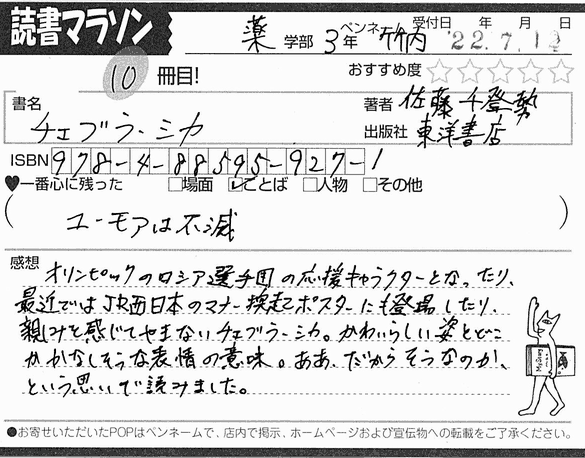 読書マラソン
薬 学部 3年 ペンネーム 竹内 受付日 年 月 日
'22.7.1
10 冊目! おすすめ度 ☆☆☆☆☆
書名 チェブラーシカ
著者 佐藤千登勢
出版社 東洋書店
ISBN 978-4-88595-927-1
♥一番心に残った □場面 ☑ことば □人物 □その他
(ユーモアは不滅)
感想 オリンピックのロシア選手団の応援キャラクターとなったり、
最近ではJR西日本のマナー喚起ポスターにも登場したり、
親しみを感じてやまないチェブラーシカ。かわいらしい姿とどこ
かかなしそうな表情の意味。ああ、だからそうなのか、
という思いで読みました。
●お寄せいただいたPOPはペンネームで、店内で掲示、ホームページおよび宣伝物への転載をご了承ください。